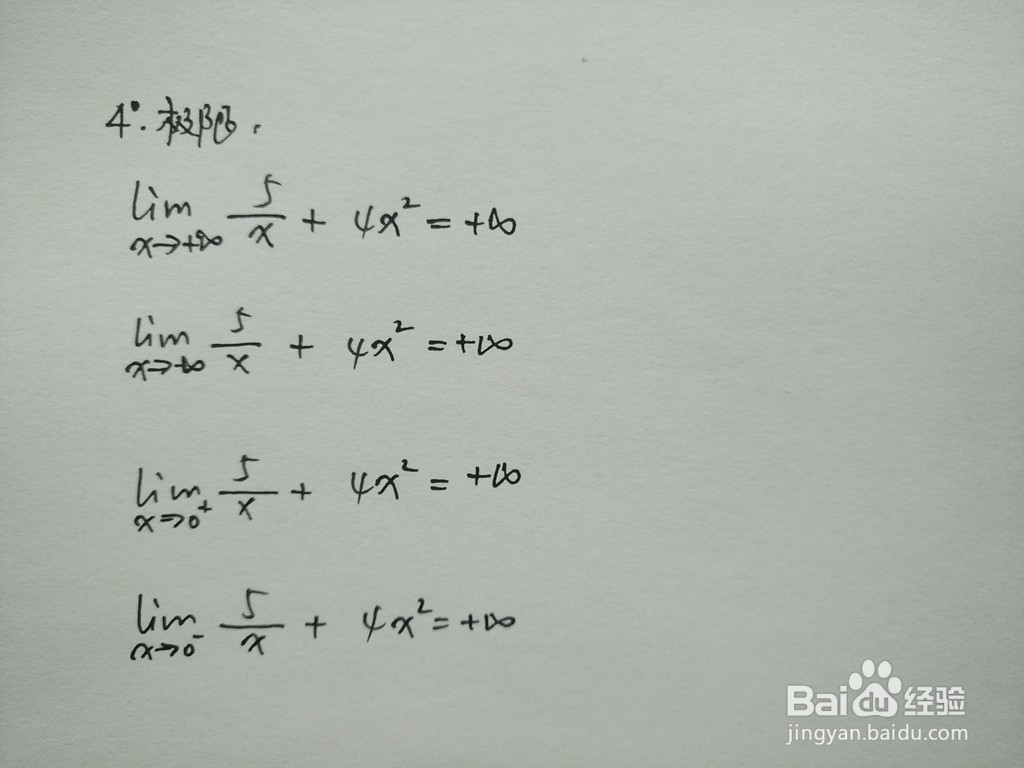 4°. 极限.
lim x→+∞ 5/x + 4x² = +∞
lim x→-∞ 5/x + 4x² = +∞
lim x→0⁺ 5/x + 4x² = +∞
lim x→0⁻ 5/x + 4x² = +∞
Baidu 经验
jingyan.baidu.com